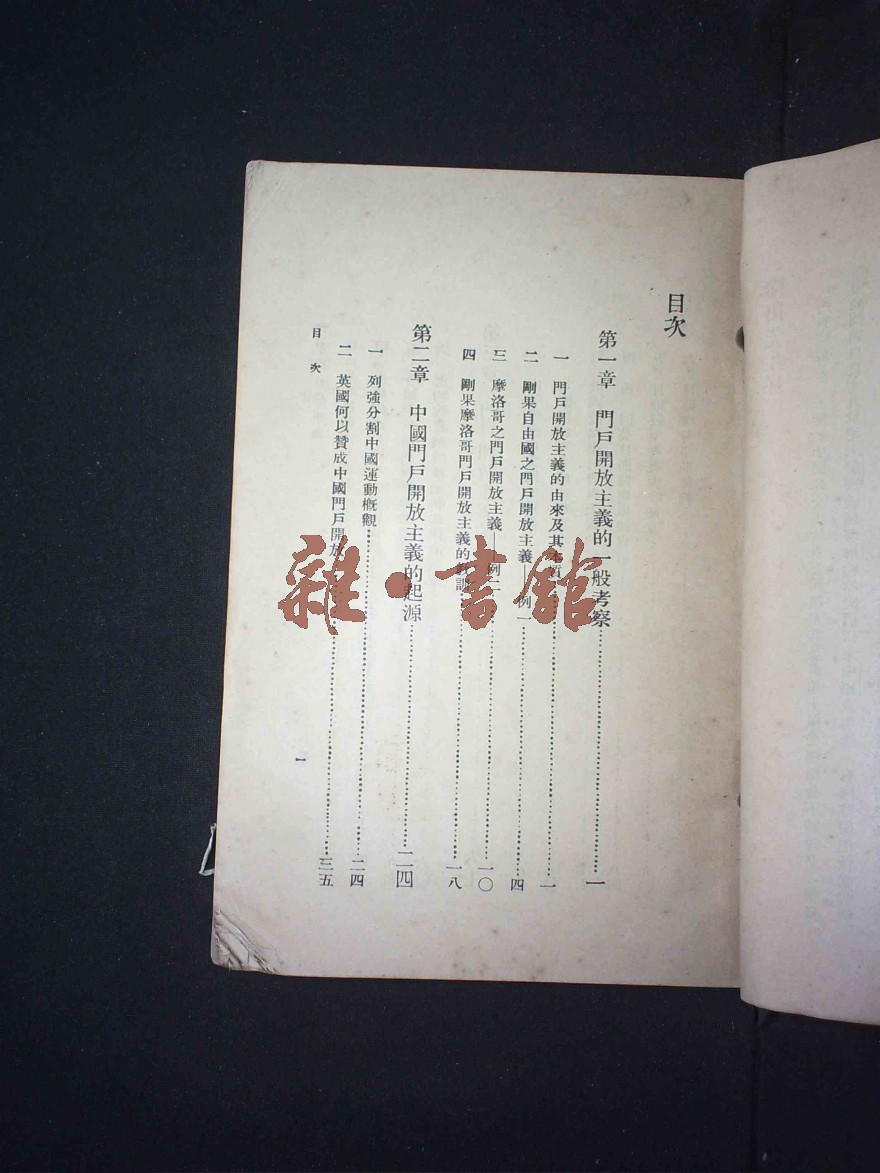 目次
第一章　門戶開放主義的一般考察…………一
一　門戶開放主義的由來及其本質…………一
二　剛果自由國之門戶開放主義——例一…………四
三　摩洛哥之門戶開放主義——例二…………一〇
四　剛果摩洛哥門戶開放主義的教訓…………一八
第二章　中國門戶開放主義的起源…………二四
一　列強分割中國運動概觀…………二四
二　英國何以贊成中國門戶開放…………三五
目次
一
雜·書館